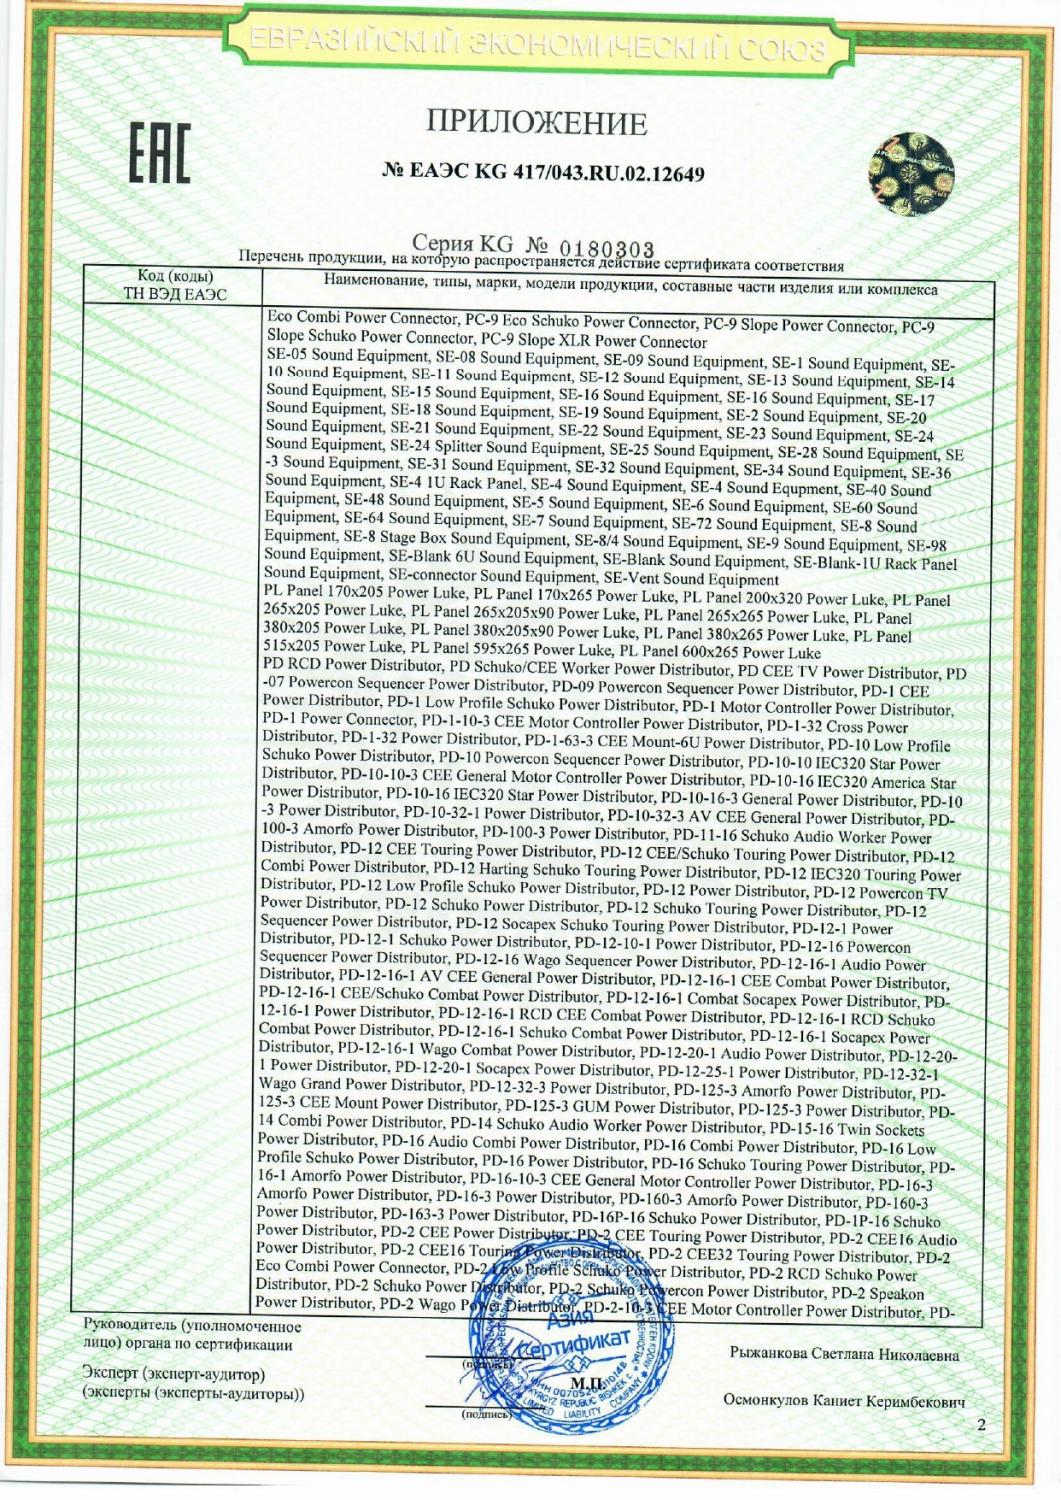 ЕВРАЗИЙСКИЙ ЭКОНОМИЧЕСКИЙ СОЮЗ
EAC
ПРИЛОЖЕНИЕ
№ ЕАЭС KG 417/043.RU.02.12649
Серия KG № 0180303
Перечень продукции, на которую распространяется действие сертификата соответствия
Код (коды)
ТН ВЭД ЕАЭС
Наименование, типы, марки, модели продукции, составные части изделия или комплекса
Eco Combi Power Connector, PC-9 Eco Schuko Power Connector, PC-9 Slope Power Connector, PC-9
Slope Schuko Power Connector, PC-9 Slope XLR Power Connector
SE-05 Sound Equipment, SE-08 Sound Equipment, SE-09 Sound Equipment, SE-1 Sound Equipment, SE-
10 Sound Equipment, SE-11 Sound Equipment, SE-12 Sound Equipment, SE-13 Sound Equipment, SE-14
Sound Equipment, SE-15 Sound Equipment, SE-16 Sound Equipment, SE-16 Sound Equipment, SE-17
Sound Equipment, SE-18 Sound Equipment, SE-19 Sound Equipment, SE-2 Sound Equipment, SE-20
Sound Equipment, SE-21 Sound Equipment, SE-22 Sound Equipment, SE-23 Sound Equipment, SE-24
Sound Equipment, SE-24 Splitter Sound Equipment, SE-25 Sound Equipment, SE-28 Sound Equipment, SE
-3 Sound Equipment, SE-31 Sound Equipment, SE-32 Sound Equipment, SE-34 Sound Equipment, SE-36
Sound Equipment, SE-4 1U Rack Panel, SE-4 Sound Equipment, SE-4 Sound Equpment, SE-40 Sound
Equipment, SE-48 Sound Equipment, SE-5 Sound Equipment, SE-6 Sound Equipment, SE-60 Sound
Equipment, SE-64 Sound Equipment, SE-7 Sound Equipment, SE-72 Sound Equipment, SE-8 Sound
Equipment, SE-8 Stage Box Sound Equipment, SE-8/4 Sound Equipment, SE-9 Sound Equipment, SE-98
Sound Equipment, SE-Blank 6U Sound Equipment, SE-Blank Sound Equipment, SE-Blank-1U Rack Panel
Sound Equipment, SE-connector Sound Equipment, SE-Vent Sound Equipment
PL Panel 170x205 Power Luke, PL Panel 170x265 Power Luke, PL Panel 200x320 Power Luke, PL Panel
265x205 Power Luke, PL Panel 265x205x90 Power Luke, PL Panel 265x265 Power Luke, PL Panel
380x205 Power Luke, PL Panel 380x205x90 Power Luke, PL Panel 380x265 Power Luke, PL Panel
515x205 Power Luke, PL Panel 595x265 Power Luke, PL Panel 600x265 Power Luke
PD RCD Power Distributor, PD Schuko/CEE Worker Power Distributor, PD CEE TV Power Distributor, PD
-07 Powercon Sequencer Power Distributor, PD-09 Powercon Sequencer Power Distributor, PD-1 CEE
Power Distributor, PD-1 Low Profile Schuko Power Distributor, PD-1 Motor Controller Power Distributor,
PD-1 Power Connector, PD-1-10-3 CEE Motor Controller Power Distributor, PD-1-32 Cross Power
Distributor, PD-1-32 Power Distributor, PD-1-63-3 CEE Mount-6U Power Distributor, PD-10 Low Profile
Schuko Power Distributor, PD-10 Powercon Sequencer Power Distributor, PD-10-10 IEC320 Star Power
Distributor, PD-10-10-3 CEE General Motor Controller Power Distributor, PD-10-16 IEC320 America Star
Power Distributor, PD-10-16 IEC320 Star Power Distributor, PD-10-16-3 General Power Distributor, PD-10
-3 Power Distributor, PD-10-32-1 Power Distributor, PD-10-32-3 AV CEE General Power Distributor, PD-
100-3 Amorfo Power Distributor, PD-100-3 Power Distributor, PD-11-16 Schuko Audio Worker Power
Distributor, PD-12 CEE Touring Power Distributor, PD-12 CEE/Schuko Touring Power Distributor, PD-12
Combi Power Distributor, PD-12 Harting Schuko Touring Power Distributor, PD-12 IEC320 Touring Power
Distributor, PD-12 Low Profile Schuko Power Distributor, PD-12 Power Distributor, PD-12 Powercon TV
Power Distributor, PD-12 Schuko Power Distributor, PD-12 Schuko Touring Power Distributor, PD-12
Sequencer Power Distributor, PD-12 Socapex Schuko Touring Power Distributor, PD-12-1 Power
Distributor, PD-12-1 Schuko Power Distributor, PD-12-10-1 Power Distributor, PD-12-16 Powercon
Sequencer Power Distributor, PD-12-16 Wago Sequencer Power Distributor, PD-12-16-1 Audio Power
Distributor, PD-12-16-1 AV CEE General Power Distributor, PD-12-16-1 CEE Combat Power Distributor,
PD-12-16-1 CEE/Schuko Combat Power Distributor, PD-12-16-1 Combat Socapex Power Distributor, PD-
12-16-1 Power Distributor, PD-12-16-1 RCD CEE Combat Power Distributor, PD-12-16-1 RCD Schuko
Combat Power Distributor, PD-12-16-1 Schuko Combat Power Distributor, PD-12-16-1 Socapex Power
Distributor, PD-12-16-1 Wago Combat Power Distributor, PD-12-20-1 Audio Power Distributor, PD-12-20-
1 Power Distributor, PD-12-20-1 Socapex Power Distributor, PD-12-25-1 Power Distributor, PD-12-32-1
Wago Grand Power Distributor, PD-12-32-3 Power Distributor, PD-125-3 Amorfo Power Distributor, PD-
125-3 CEE Mount Power Distributor, PD-125-3 GUM Power Distributor, PD-125-3 Power Distributor, PD-
14 Combi Power Distributor, PD-14 Schuko Audio Worker Power Distributor, PD-15-16 Twin Sockets
Power Distributor, PD-16 Audio Combi Power Distributor, PD-16 Combi Power Distributor, PD-16 Low
Profile Schuko Power Distributor, PD-16 Power Distributor, PD-16 Schuko Touring Power Distributor, PD-
16-1 Amorfo Power Distributor, PD-16-10-3 CEE General Motor Controller Power Distributor, PD-16-3
Amorfo Power Distributor, PD-16-3 Power Distributor, PD-160-3 Amorfo Power Distributor, PD-160-3
Power Distributor, PD-163-3 Power Distributor, PD-16P-16 Schuko Power Distributor, PD-1P-16 Schuko
Power Distributor, PD-2 CEE Power Distributor, PD-2 CEE Touring Power Distributor, PD-2 CEE16 Audio
Power Distributor, PD-2 CEE16 Touring Power Distributor, PD-2 CEE32 Touring Power Distributor, PD-2
Eco Combi Power Connector, PD-2 Low Profile Schuko Power Distributor, PD-2 RCD Schuko Power
Distributor, PD-2 Schuko Power Distributor, PD-2 Schuko Powercon Power Distributor, PD-2 Speakon
Power Distributor, PD-2 Wago Power Distributor, PD-2-10-3 CEE Motor Controller Power Distributor, PD-
Руководитель (уполномоченное
лицо) органа по сертификации
(подпись)
Рыжанкова Светлана Николаевна
Азия
Сертификат
М.П.
KYRGYZ REPUBLIC BISHKEK
LIMITED LIABILITY COMPANY
Эксперт (эксперт-аудитор)
(эксперты (эксперты-аудиторы))
(подпись)
Осмонкулов Каниет Керимбекович
2